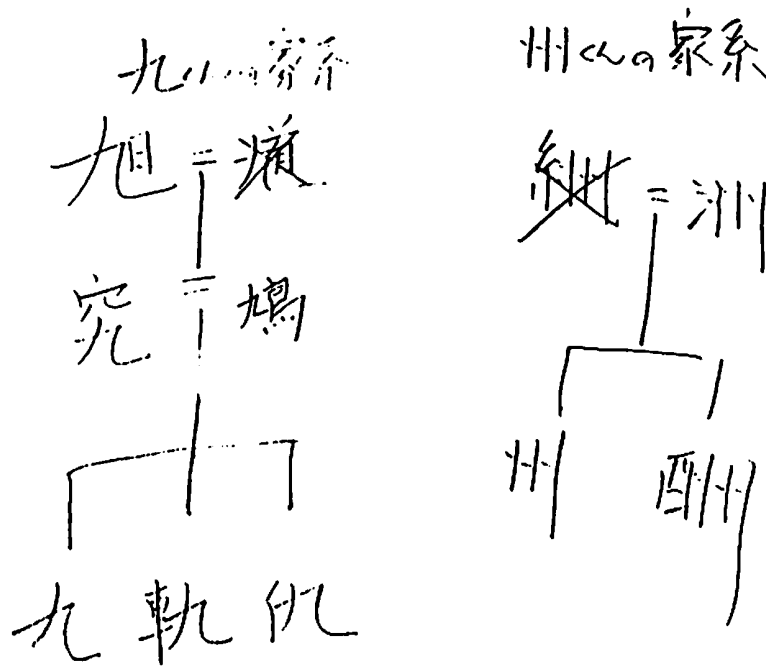 九くんの家系
旭 =
究 = 鳩
九 軌 仇
州くんの家系
= 洲
州 酬